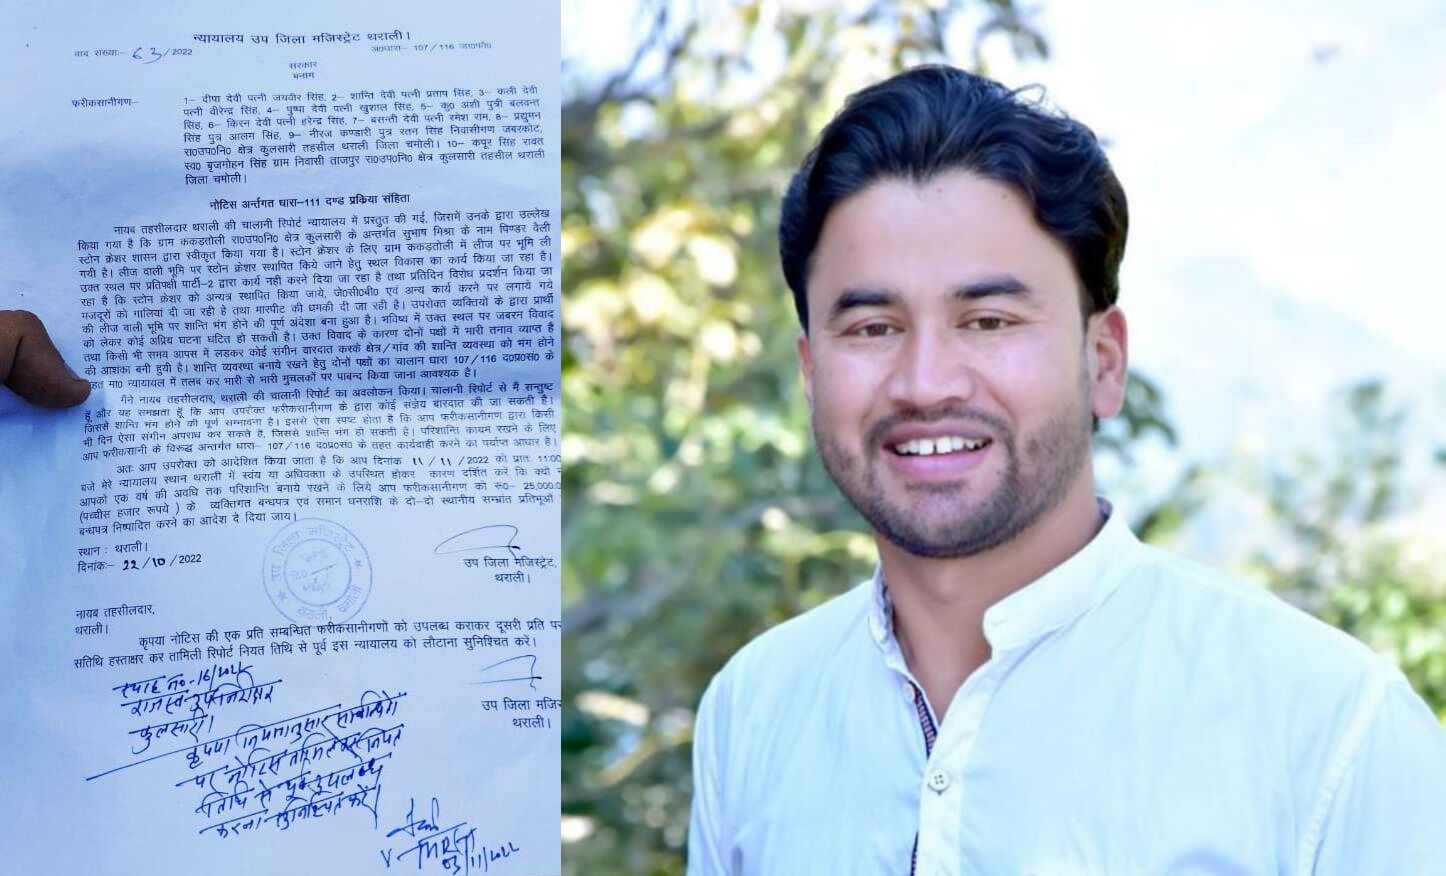 न्यायालय उप जिला मजिस्ट्रेट थराली।
वाद संख्याः- 63/2022
अ०धारा- 107/116 जा०फौ०
सरकार
बनाम
फरीकसानीगण-
1- दीपा देवी पत्नी जयवीर सिंह, 2- शान्ति देवी पत्नी प्रताप सिंह, 3- कली देवी
पत्नी वीरेन्द्र सिंह, 4- पुष्पा देवी पत्नी खुशाल सिंह, 5- कु० अंशी पुत्री बलवन्त
सिंह, 6- किरन देवी पत्नी हरेन्द्र सिंह, 7- बसन्ती देवी पत्नी रमेश राम, 8- प्रद्युमन
सिंह पुत्र आलम सिंह, 9- नीरज कण्डारी पुत्र रतन सिंह निवासीगण जबरकोट,
रा०उ०नि० क्षेत्र कुलसारी तहसील थराली जिला चमोली। 10- कपूर सिंह रावत
स्व० बृजमोहन सिंह ग्राम निवासी ताजपुर रा०उ०नि० क्षेत्र कुलसारी तहसील थराली
जिला चमोली।
नोटिस अर्न्तगत धारा-111 दण्ड प्रकिया संहिता
नायब तहसीलदार थराली की चालानी रिपोर्ट न्यायालय में प्रस्तुत की गई, जिसमें उनके द्वारा उल्लेख
किया गया है कि ग्राम ककड़तोली रा०उ०नि० क्षेत्र कुलसारी के अन्तर्गत सुभाष मिश्रा के नाम पिण्डर वैली
स्टोन क्रेशर शासन द्वारा स्वीकृत किया गया है। स्टोन क्रेशर के लिए ग्राम ककड़तोली में लीज पर भूमि ली
गयी है। लीज वाली भूमि पर स्टोन क्रेशर स्थापित किये जाने हेतु स्थल विकास का कार्य किया जा रहा है।
उक्त स्थल पर प्रतिपक्षी पार्टी-2 द्वारा कार्य नही करने दिया जा रहा है तथा प्रतिदिन विरोध प्रदर्शन किया जा
रहा है कि स्टोन क्रेशर को अन्यत्र स्थापित किया जाये, जे०सी०बी० एवं अन्य कार्य करने पर लगाये गये
मजदूरों को गालियां दी जा रही है तथा मारपीट की धमकी दी जा रही है। उपरोक्त व्यक्तियों के द्वारा प्रार्थी
की लीज वाली भूमि पर शान्ति भंग होने की पूर्ण अंदेशा बना हुआ है। भविष्य में उक्त स्थल पर जबरन विवाद
को लेकर कोई अप्रिय घटना घटित हो सकती है। उक्त विवाद के कारण दोनों पक्षों में भारी तनाव व्याप्त है
तथा किसी भी समय आपस में लडकर कोई संगीन वारदात करके क्षेत्र/गांव की शान्ति व्यवस्था को भंग होने
की आशंका बनी हुयी है। शान्ति व्यवस्था बनाये रखने हेतु दोनों पक्षों का चालान धारा 107/116 द०प्र०सं० के
तहत मा० न्यायालय में तलब कर भारी से भारी मुचलकों पर पाबन्द किया जाना आवश्यक है।
मैंने नायब तहसीलदार, थराली की चालानी रिपोर्ट का अवलोकन किया। चालानी रिपोर्ट से मैं सन्तुष्ट
हूँ और यह समझता हूँ कि आप उपरोक्त फरीकसानीगण के द्वारा कोई संज्ञेय बारदात की जा सकती है।
जिससे शान्ति भंग होने की पूर्ण सम्भावना है। इससे ऐसा स्पष्ट होता है कि आप फरीकसानीगण द्वारा किसी
भी दिन ऐसा संगीन अपराध कर सकते है, जिससे शान्ति भंग हो सकती है। परिशान्ति कायम रखने के लिए
आप फरीकसानी के विरूद्ध अन्तर्गत धारा- 107/116 द०प्र०सं० के तहत कार्यवाही करने का पर्याप्त आधार है।
अतः आप उपरोक्त को आदेशित किया जाता है कि आप दिनांक 11/11/2022 को प्रातः 11:00
बजे मेरे न्यायालय स्थान थराली में स्वंय या अधिवक्ता के उपस्थित होकर कारण दर्शित करें कि क्यों न
आपको एक वर्ष की अवधि तक परिशान्ति बनाये रखने के लिये आप फरीकसानीगण को रू०- 25,000.0
(पच्चीस हजार रूपये ) के व्यक्तिगत बन्धपत्र एवं समान धनराशि के दो-दो स्थानीय सम्भ्रांत प्रतिभूओं
बन्धपत्र निष्पादित करने का आदेश दे दिया जाय।
स्थान : थराली।
दिनांकः- 22/10/2022
उप जिला मजिस्ट्रेट,
थराली।
नायब तहसीलदार,
थराली।
कृपया नोटिस की एक प्रति सम्बन्धित फरीकसानीगणों को उपलब्ध कराकर दूसरी प्रति पर
सतिथि हस्ताक्षर कर तामिली रिपोर्ट नियत तिथि से पूर्व इस न्यायालय को लौटाना सुनिश्चित करें।
उप जिला मजि
थराली।
राजस्व उपनिरीक्षक
कुलसारी।
कृपया नियमानुसार सम्बन्धितों
पर नोटिस तामिल कर नियत
तिथि से पूर्व उपलब्ध
करना सुनिश्चित करें।
03/11/2022